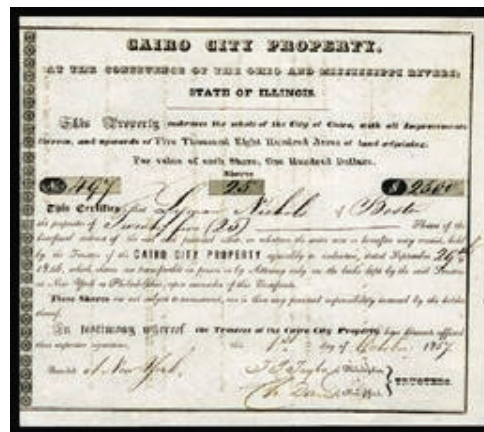 CAIRO CITY PROPERTY,
AT THE CONFLUENCE OF THE OHIO AND MISSISSIPPI RIVERS;
STATE OF ILLINOIS.
This Property embraces the whole of the City of Cairo, with all Improvements
thereon, and upwards of Five Thousand Eight Hundred Acres of land adjoining.
Par value of each Share, One Hundred Dollars.
Shares
497 25 $ 2500
This Certifies that Lyman Nichols of Boston
the proprietor of Twenty five (25) Shares of the
beneficial interest of the
by the Trustees of the CAIRO CITY PROPERTY dated September 29th
1846, which shares are transferable in person or by Attorney only on the books kept by the said Trustees
at New York or Philadelphia, upon surrender of this Certificate.
These Shares are not subject to assessment, nor is there any personal responsibility incurred by the holder
thereof.
In testimony whereof the Trustees of the Cairo City Property have hereunto affixed
their respective signatures, this 1st day of October 1857
at New York. T S Taylor Philadelphia
New York. TRUSTEES